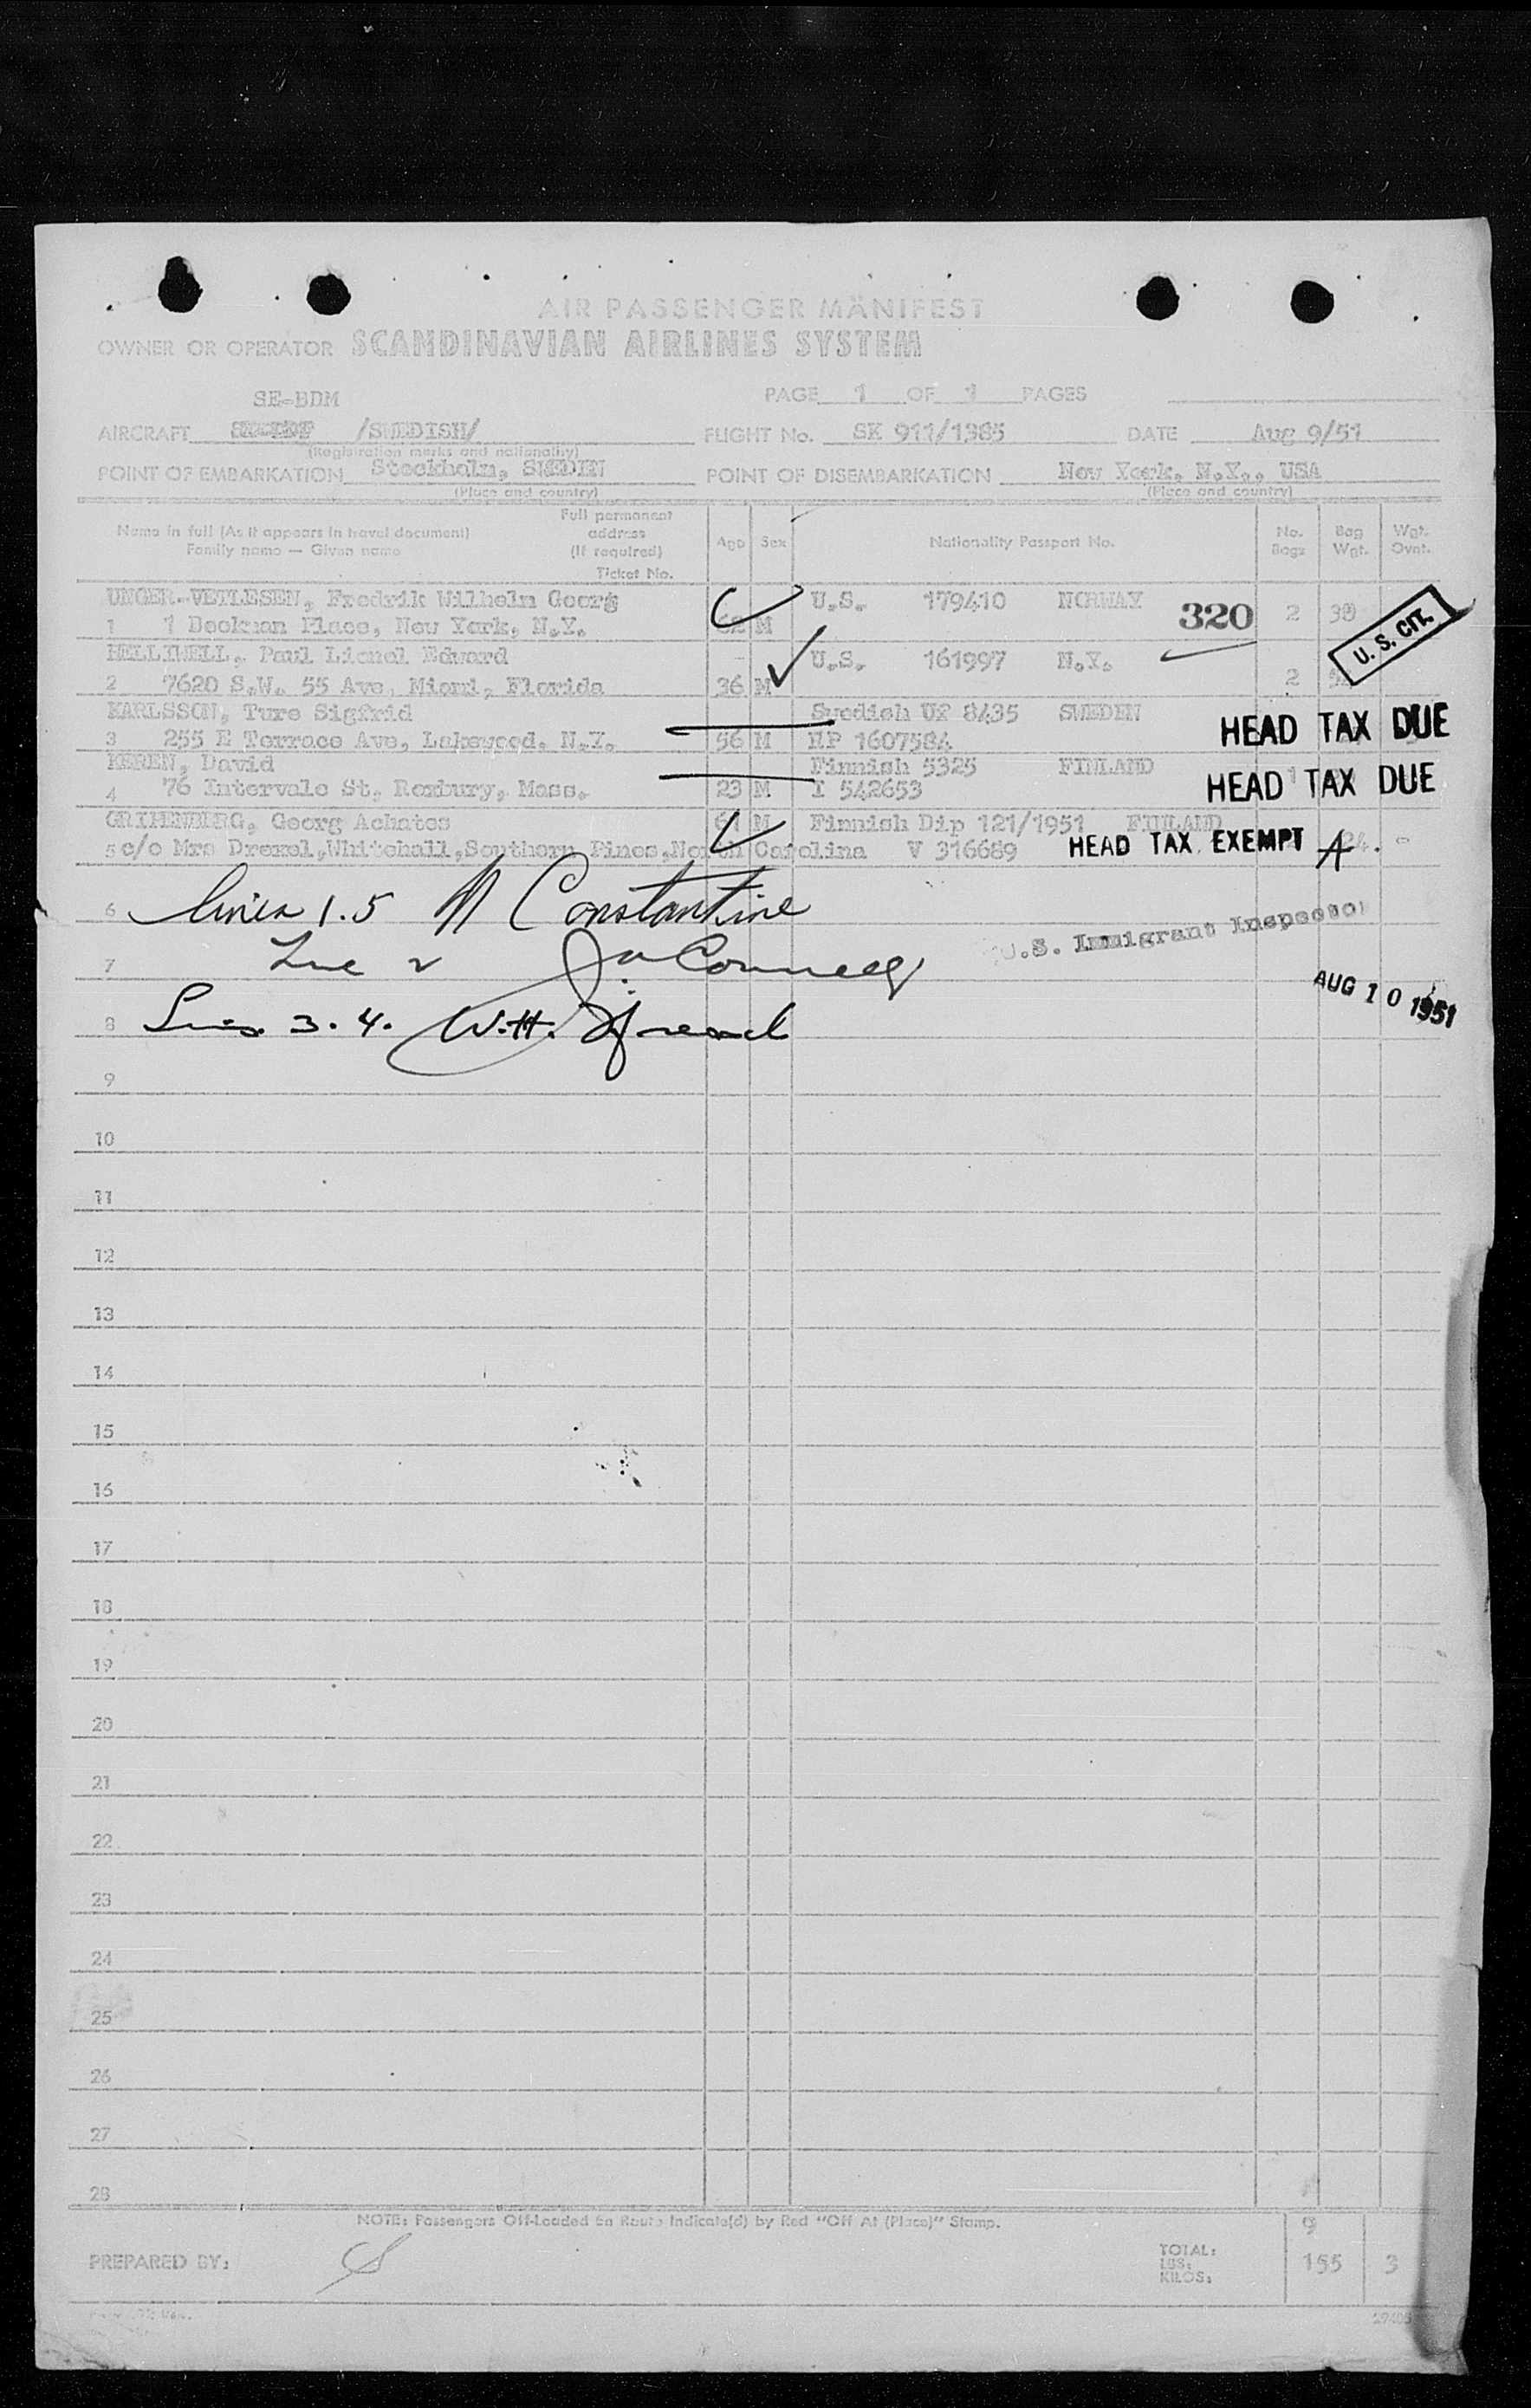 AIR PASSENGER MANIFEST
OWNER OR OPERATOR SCANDINAVIAN AIRLINES SYSTEM
SE-BDM
PAGE 1 OF 1 PAGES
AIRCRAFT /SWEDISH/ FLIGHT No. SK 911/1385 DATE Aug 9/51
(Registration marks and nationality)
POINT OF EMBARKATION Stockholm, SWEDEN POINT OF DISEMBARKATION New York, N.Y., USA
(Place and country) (Place and country)
Name in full (As it appears in travel document)
Family name — Given name
Full permanent
address
(If required)
Ticket No.
Age Sex Nationality Passport No. No. Bags Bag Wgt. Wgt. Ovwt.
UNGER-VETLESEN, Fredrik Wilhelm Georg U.S. 179410 NORWAY
1 1 Beekman Place, New York, N.Y. 62 M 320 2 38
HELLIWELL, Paul Lionel Edward U.S. 161997 N.Y. U.S. CIT.
2 7620 S.W. 55 Ave, Miami, Florida 36 M 2
KARLSSON, Ture Sigfrid Swedish UP 8435 SWEDEN
3 255 E Terrace Ave, Lakewood, N.Y. 56 M RP 1607584 HEAD TAX DUE
KEREN, David Finnish 5325 FINLAND
4 76 Intervale St, Roxbury, Mass. 23 M I 542653 1 HEAD TAX DUE
GRIPENBERG, Georg Achates 61 M Finnish Dip 121/1951 FINLAND
5 c/o Mrs Drexel,Whitehall,Southern Pines,North Carolina V 316689 HEAD TAX EXEMPT A 24.
6 Lines 1.5 Constantine
U.S. Immigrant Inspector
7 Line 2
AUG 10 1951
8 Lines 3.4. W.H.
9
10
11
12
13
14
15
16
17
18
19
20
21
22
23
24
25
26
27
28
NOTE: Passengers Off-Loaded En Route Indicate(d) by Red "Off At (Place)" Stamp.
9
PREPARED BY:
TOTAL:
LBS:
KILOS: 155 3